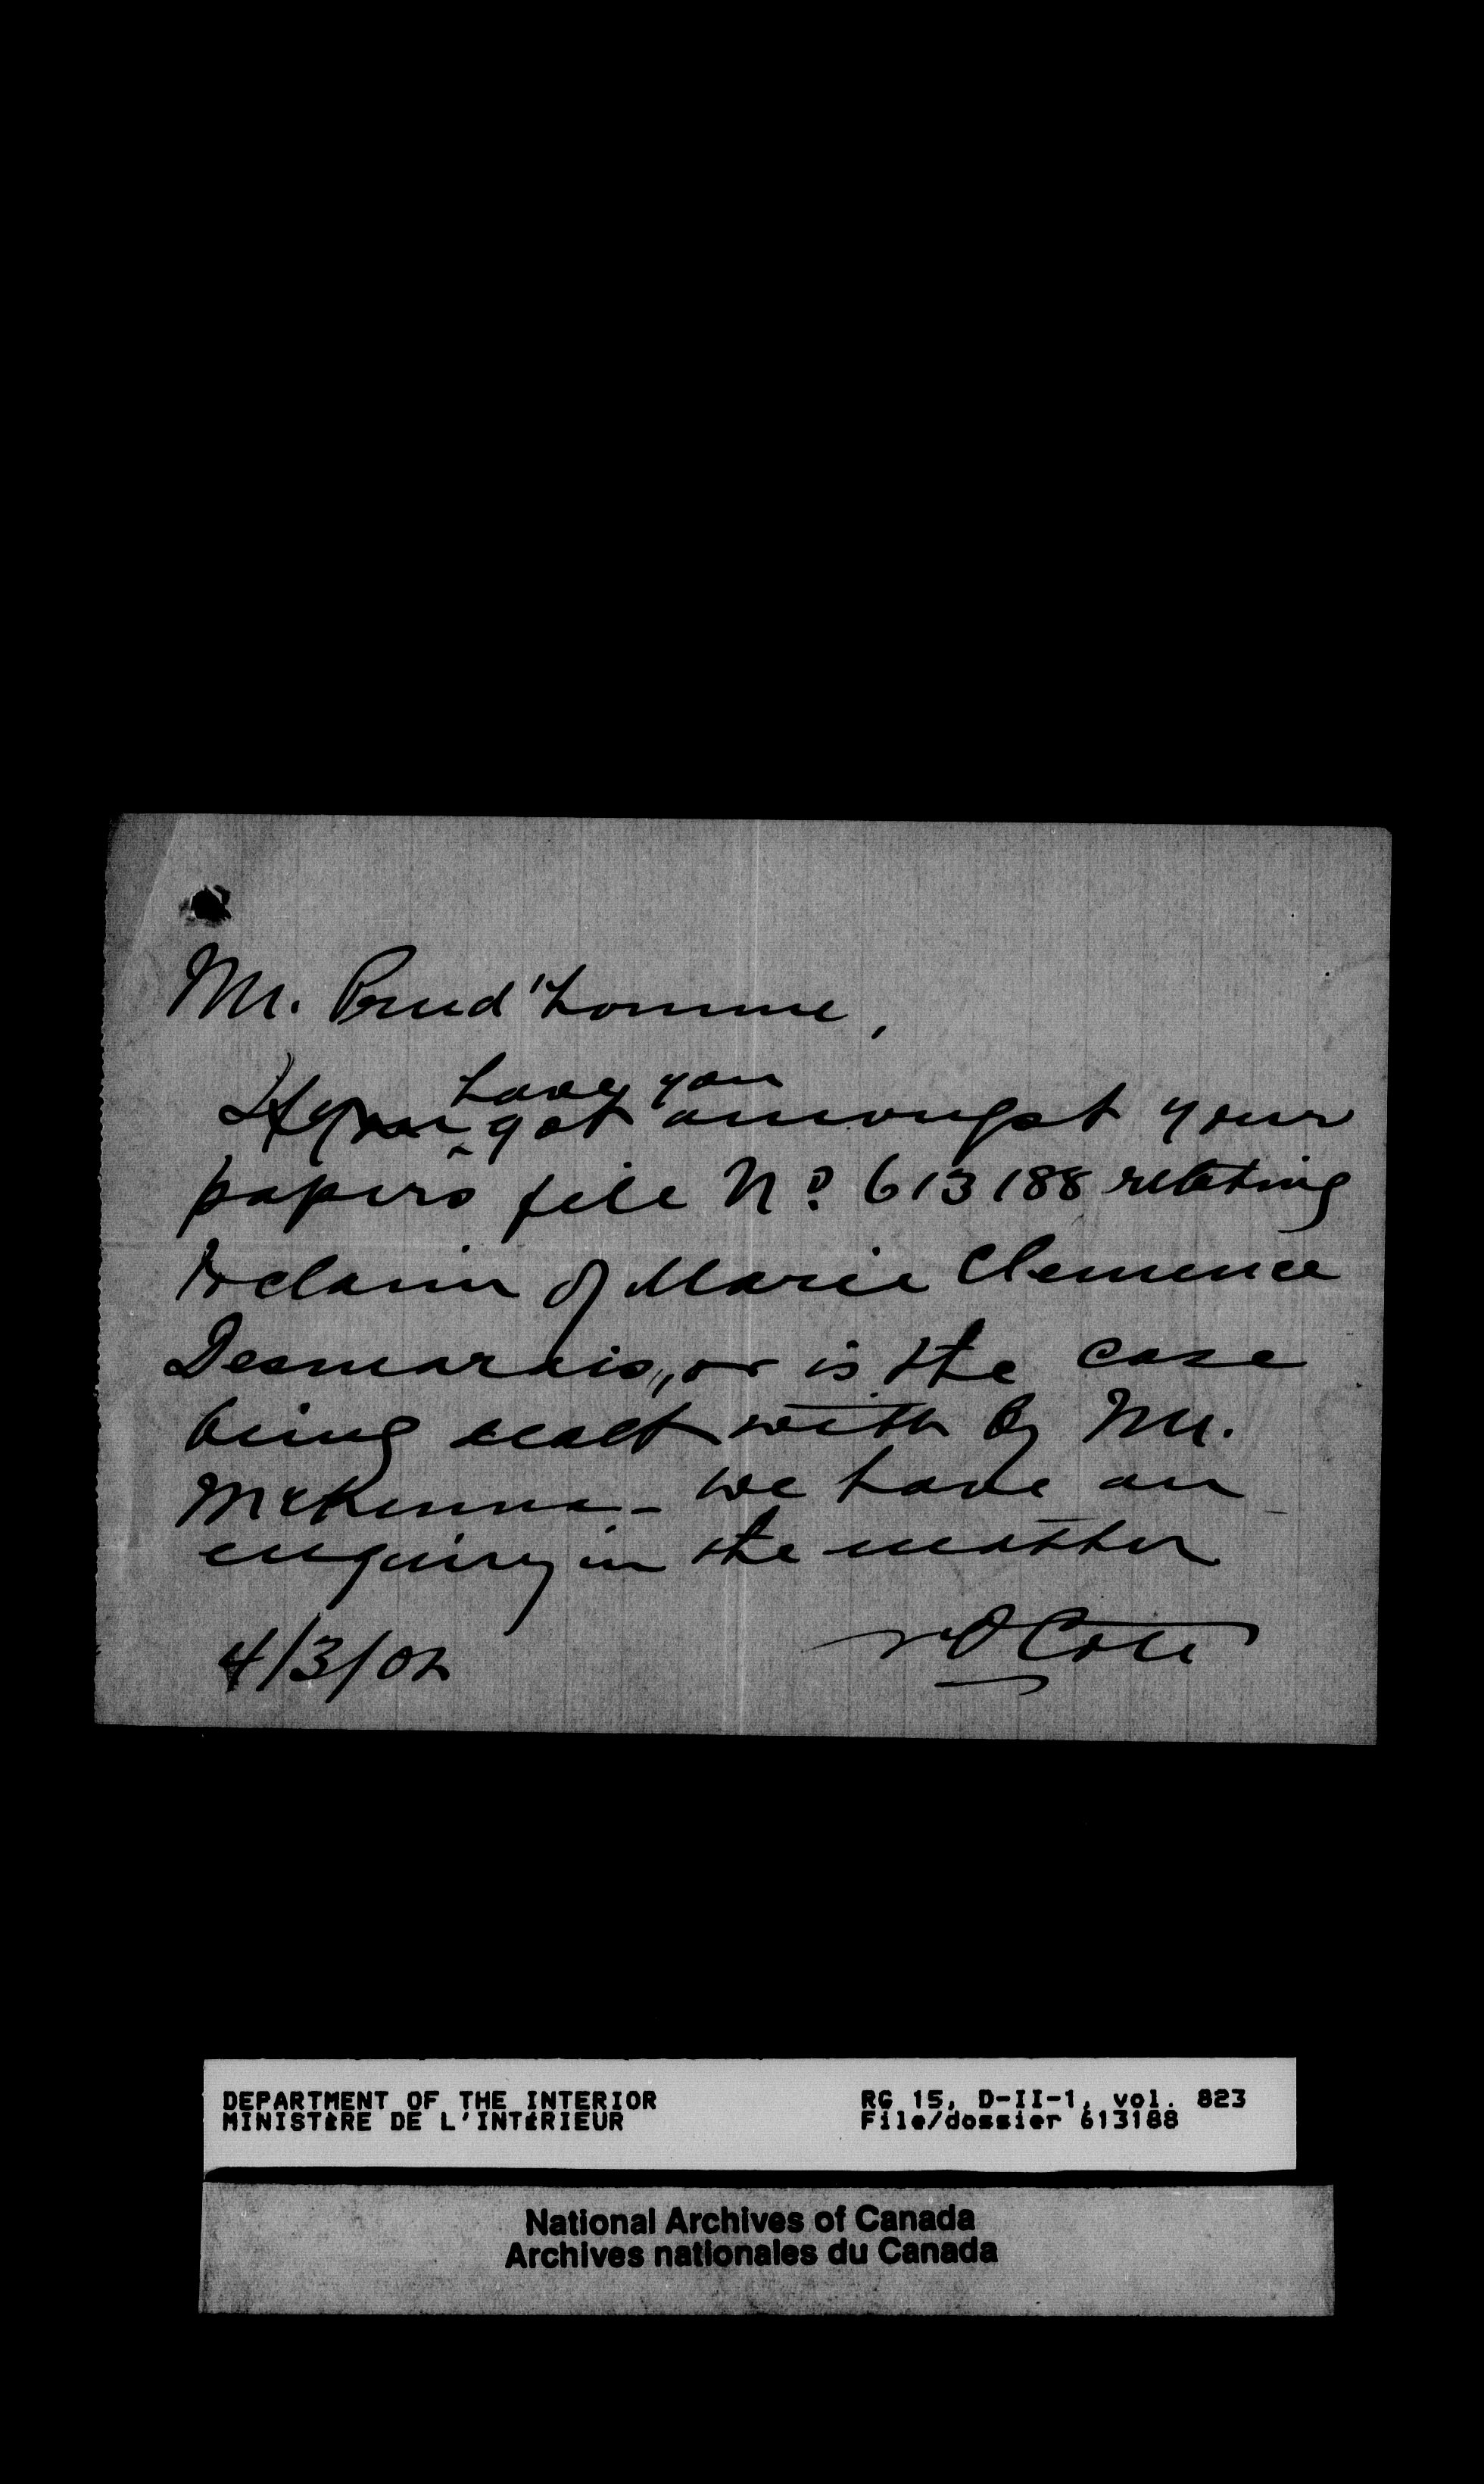 Mr. Prud'homme,
have you
If you got amongst your
papers file No. 613188 relating
to claim of Marie Clemence
Desmarais, or is the case
being dealt with by Mr.
McKenna - we have an
enquiry in the matter
4/3/02 N O Coté
DEPARTMENT OF THE INTERIOR RG 15, D-II-1, vol. 823
MINISTÈRE DE L'INTÉRIEUR File/dossier 613188
National Archives of Canada
Archives nationales du Canada